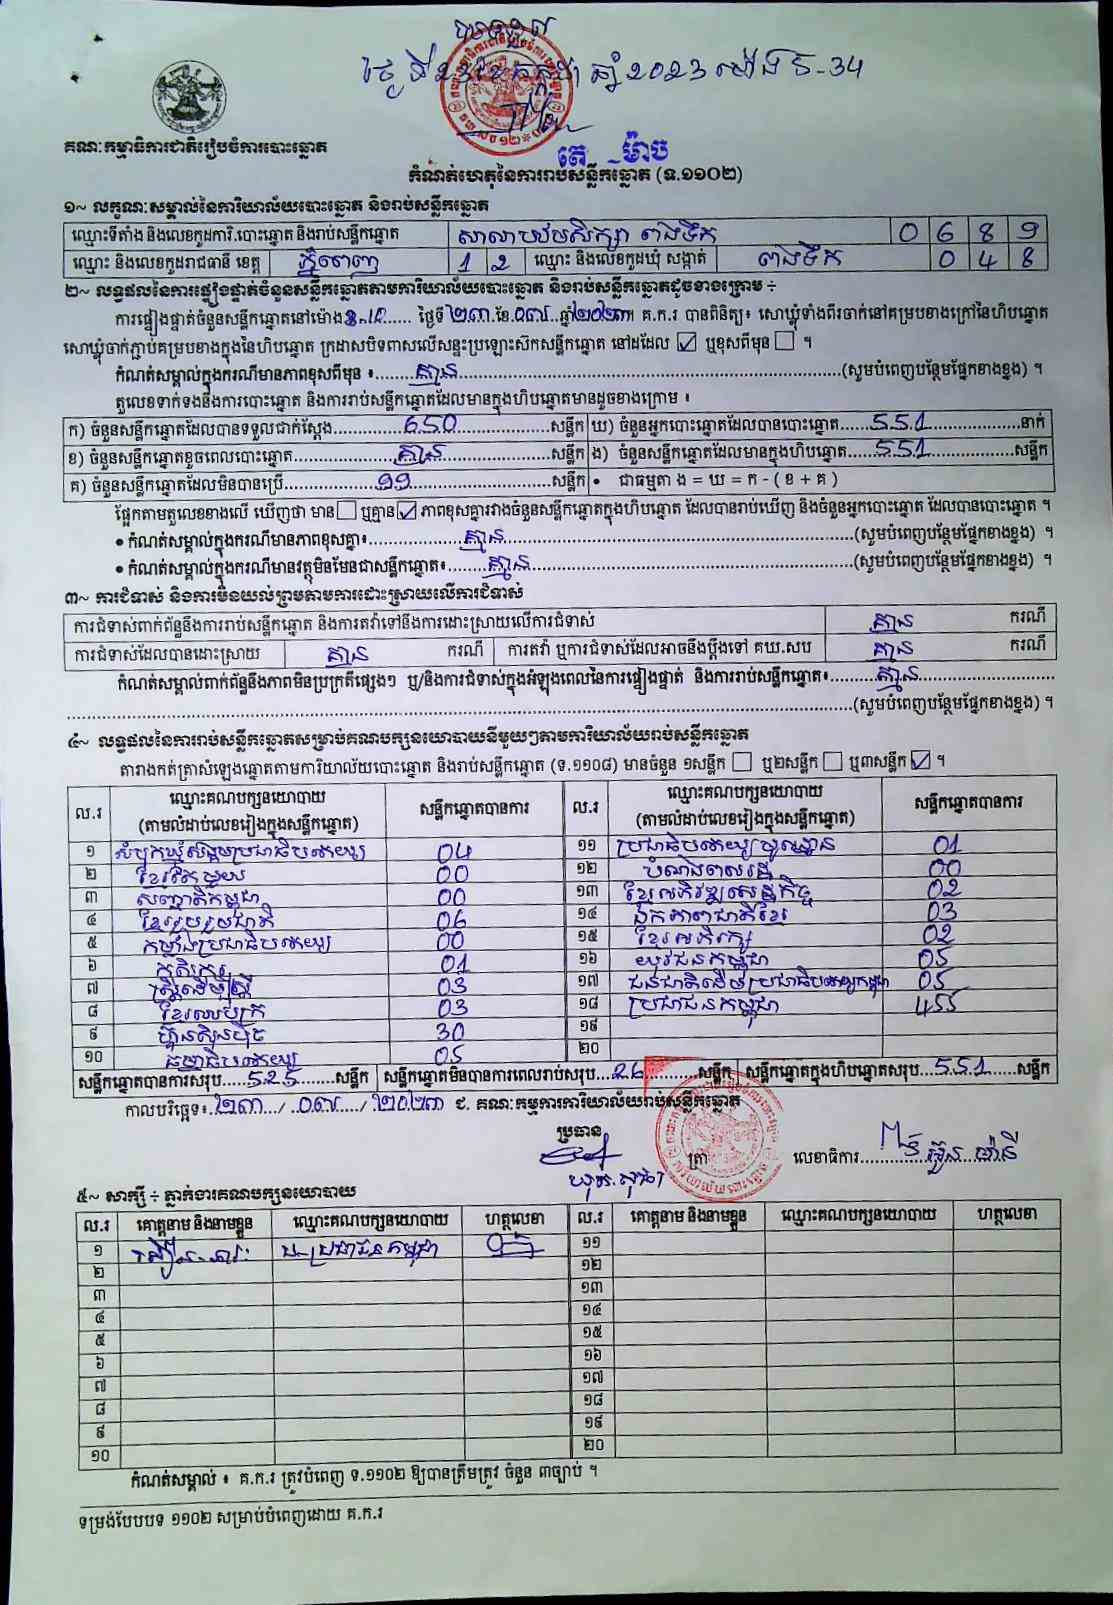 ថ្ងៃទី23 ខែកក្កដា ឆ្នាំ2023 ម៉ោង 5-34
គណៈកម្មាធិការជាតិរៀបចំការបោះឆ្នោត
តេ ម៉ាប
កំណត់ហេតុនៃការរាប់សន្លឹកឆ្នោត (ទ.១១០២)
១~ លក្ខណៈសម្គាល់នៃការិយាល័យបោះឆ្នោត និងរាប់សន្លឹកឆ្នោត
ឈ្មោះទីតាំង និងលេខកូដការិ.បោះឆ្នោត និងរាប់សន្លឹកឆ្នោត សាលាបឋមសិក្សា ពាងទឹក 0 6 8 9
ឈ្មោះ និងលេខកូដរាជធានី ខេត្ត ភ្នំពេញ 1 2 ឈ្មោះ និងលេខកូដឃុំ សង្កាត់ ពាងទឹក 0 4 8
២~ លទ្ធផលនៃការផ្ទៀងផ្ទាត់ចំនួនសន្លឹកឆ្នោតតាមការិយាល័យបោះឆ្នោត និងរាប់សន្លឹកឆ្នោតដូចខាងក្រោម ÷
ការផ្ទៀងផ្ទាត់ចំនួនសន្លឹកឆ្នោតនៅម៉ោង ថ្ងៃទី ២៣ ខែ ០៧ ឆ្នាំ ២០២៣ គ.ក.រ បានពិនិត្យ៖ សោឃ្លុំទាំងពីរចាក់នៅគម្របខាងក្រៅនៃហិបឆ្នោត
សោឃ្លុំចាក់ភ្ជាប់គម្របខាងក្នុងនៃហិបឆ្នោត ក្រដាសបិទពាសលើសន្ទះប្រឡោះស៊កសន្លឹកឆ្នោត នៅដដែល ☑ ឬខុសពីមុន ☐ ។
កំណត់សម្គាល់ក្នុងករណីមានភាពខុសពីមុន ៖ គ្មាន (សូមបំពេញបន្ថែមផ្នែកខាងខ្នង) ។
តួលេខទាក់ទងនឹងការបោះឆ្នោត និងការរាប់សន្លឹកឆ្នោតដែលមានក្នុងហិបឆ្នោតមានដូចខាងក្រោម ៖
ក) ចំនួនសន្លឹកឆ្នោតដែលបានទទួលជាក់ស្ដែង 650 សន្លឹក ឃ) ចំនួនអ្នកបោះឆ្នោតដែលបានបោះឆ្នោត 551 នាក់
ខ) ចំនួនសន្លឹកឆ្នោតខូចពេលបោះឆ្នោត គ្មាន សន្លឹក ង) ចំនួនសន្លឹកឆ្នោតដែលមានក្នុងហិបឆ្នោត 551 សន្លឹក
គ) ចំនួនសន្លឹកឆ្នោតដែលមិនបានប្រើ 99 សន្លឹក • ជាធម្មតា ង = ឃ = ក - ( ខ + គ )
ផ្អែកតាមតួលេខខាងលើ ឃើញថា មាន ☐ ឬគ្មាន ☑ ភាពខុសគ្នារវាងចំនួនសន្លឹកឆ្នោតក្នុងហិបឆ្នោត ដែលបានរាប់ឃើញ និងចំនួនអ្នកបោះឆ្នោត ដែលបានបោះឆ្នោត ។
• កំណត់សម្គាល់ក្នុងករណីមានភាពខុសគ្នា៖ គ្មាន (សូមបំពេញបន្ថែមផ្នែកខាងខ្នង) ។
• កំណត់សម្គាល់ក្នុងករណីមានវត្ថុមិនមែនជាសន្លឹកឆ្នោត៖ គ្មាន (សូមបំពេញបន្ថែមផ្នែកខាងខ្នង) ។
៣~ ការជំទាស់ និងការមិនយល់ព្រមតាមការដោះស្រាយលើការជំទាស់
ការជំទាស់ពាក់ព័ន្ធនឹងការរាប់សន្លឹកឆ្នោត និងការតវ៉ាទៅនឹងការដោះស្រាយលើការជំទាស់ គ្មាន ករណី
ការជំទាស់ដែលបានដោះស្រាយ គ្មាន ករណី ការតវ៉ា ឬការជំទាស់ដែលអាចនឹងប្ដឹងទៅ គឃ.សប គ្មាន ករណី
កំណត់សម្គាល់ពាក់ព័ន្ធនឹងភាពមិនប្រក្រតីផ្សេងៗ ឬ/និងការជំទាស់ក្នុងអំឡុងពេលនៃការផ្ទៀងផ្ទាត់ និងការរាប់សន្លឹកឆ្នោត៖ គ្មាន
(សូមបំពេញបន្ថែមផ្នែកខាងខ្នង) ។
៤~ លទ្ធផលនៃការរាប់សន្លឹកឆ្នោតសម្រាប់គណបក្សនយោបាយនីមួយៗតាមការិយាល័យរាប់សន្លឹកឆ្នោត
តារាងកត់ត្រាសំឡេងឆ្នោតតាមការិយាល័យបោះឆ្នោត និងរាប់សន្លឹកឆ្នោត (ទ.១១០៨) មានចំនួន ១សន្លឹក ☐ ឬ២សន្លឹក ☐ ឬ៣សន្លឹក ☑ ។
ល.រ ឈ្មោះគណបក្សនយោបាយ (តាមលំដាប់លេខរៀងក្នុងសន្លឹកឆ្នោត) សន្លឹកឆ្នោតបានការ ល.រ ឈ្មោះគណបក្សនយោបាយ (តាមលំដាប់លេខរៀងក្នុងសន្លឹកឆ្នោត) សន្លឹកឆ្នោតបានការ
១ សំបុកឃ្មុំសង្គមប្រជាធិបតេយ្យ 04 ១១ ប្រជាធិបតេយ្យមូលដ្ឋាន 01
២ ខ្មែរតែមួយ 00 ១២ បំណងពលរដ្ឋ 00
៣ សញ្ជាតិកម្ពុជា 00 ១៣ ខ្មែរអភិវឌ្ឍសេដ្ឋកិច្ច 02
៤ ខ្មែររួបរួមជាតិ 06 ១៤ ឯកភាពជាតិខ្មែរ 03
៥ កម្លាំងប្រជាធិបតេយ្យ 00 ១៥ ខ្មែរអភិរក្ស 02
៦ កសិករ 01 ១៦ យុវជនកម្ពុជា 05
៧ ស្ត្រីដើម្បីស្ត្រី 03 ១៧ ជនជាតិដើមប្រជាធិបតេយ្យកម្ពុជា 05
៨ ខ្មែរឈប់ក្រ 03 ១៨ ប្រជាជនកម្ពុជា 455
៩ ហ៊្វុនស៊ិនប៉ិច 30 ១៩
១០ ធម្មាធិបតេយ្យ 05 ២០
សន្លឹកឆ្នោតបានការសរុប 525 សន្លឹក សន្លឹកឆ្នោតមិនបានការពេលរាប់សរុប 26 សន្លឹក សន្លឹកឆ្នោតក្នុងហិបឆ្នោតសរុប 551 សន្លឹក
កាលបរិច្ឆេទ៖ ២៣ / ០៧ / ២០២៣ ជ. គណៈកម្មការការិយាល័យរាប់សន្លឹកឆ្នោត
ប្រធាន
ត្រា លេខាធិការ
៥~ សាក្សី ÷ ភ្នាក់ងារគណបក្សនយោបាយ
ល.រ គោត្តនាម និងនាមខ្លួន ឈ្មោះគណបក្សនយោបាយ ហត្ថលេខា ល.រ គោត្តនាម និងនាមខ្លួន ឈ្មោះគណបក្សនយោបាយ ហត្ថលេខា
១ ប្រជាជនកម្ពុជា ១១
២ ១២
៣ ១៣
៤ ១៤
៥ ១៥
៦ ១៦
៧ ១៧
៨ ១៨
៩ ១៩
១០ ២០
កំណត់សម្គាល់ ៖ គ.ក.រ ត្រូវបំពេញ ទ.១១០២ ឱ្យបានត្រឹមត្រូវ ចំនួន ៣ច្បាប់ ។
ទម្រង់បែបបទ ១១០២ សម្រាប់បំពេញដោយ គ.ក.រ